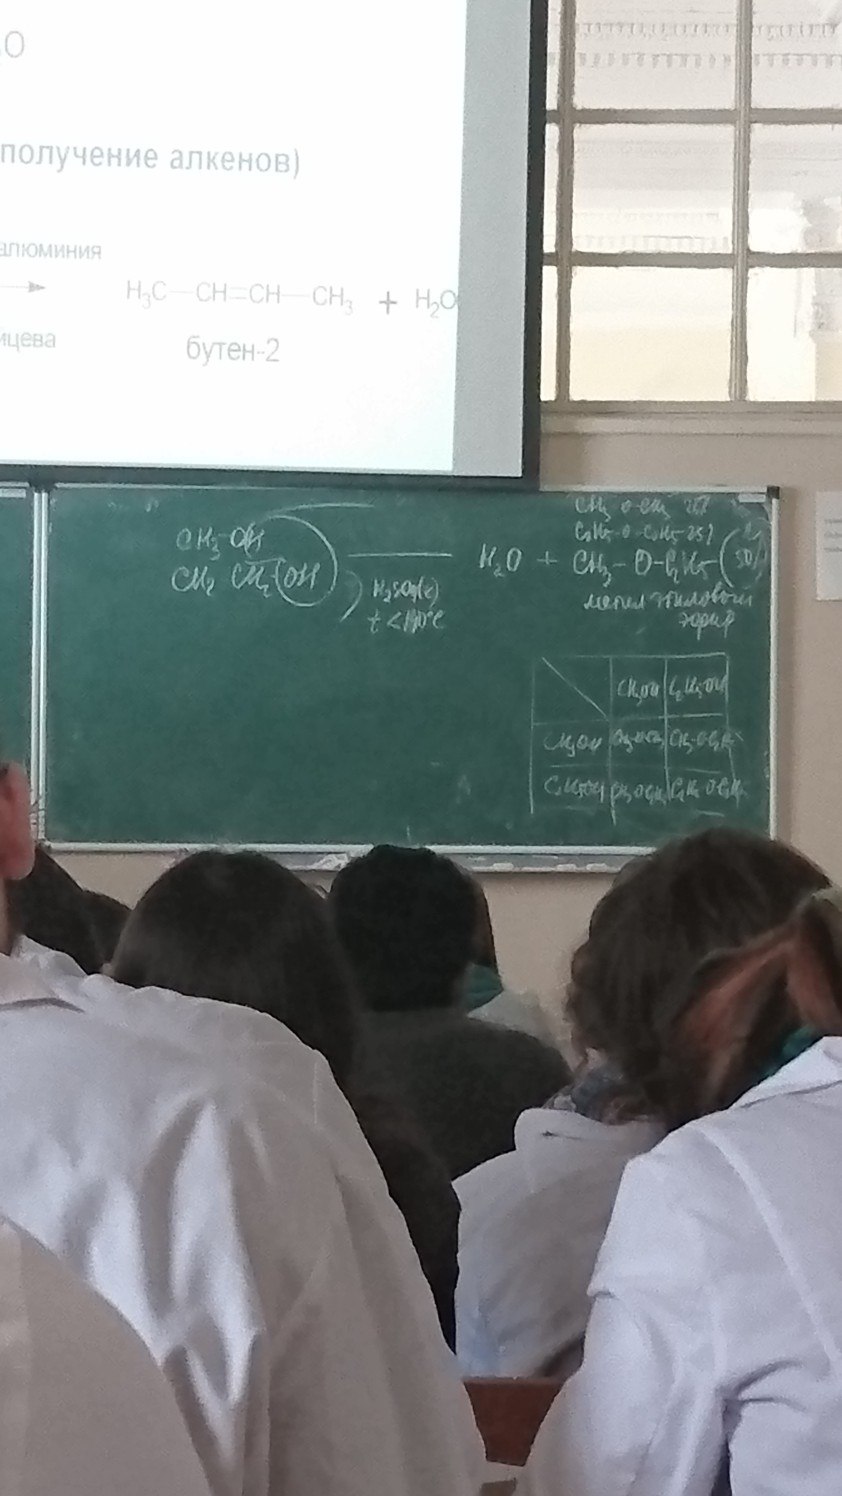 получение алкенов)
алюминия
H₃C—CH=CH—CH₃ + H₂O
бутен-2
CH₃-OH
CH₃ CH₂ OH
H₂SO₄(к)
t < 140°C
H₂O + CH₃-O-C₂H₅
CH₃-O-CH₃ 25%
C₂H₅-O-C₂H₅-25%
50%
метил этиловый
эфир
CH₃OH C₂H₅OH
CH₃OH CH₃-O-CH₃ CH₃-O-C₂H₅
C₂H₅OH CH₃OC₂H₅ C₂H₅OC₂H₅